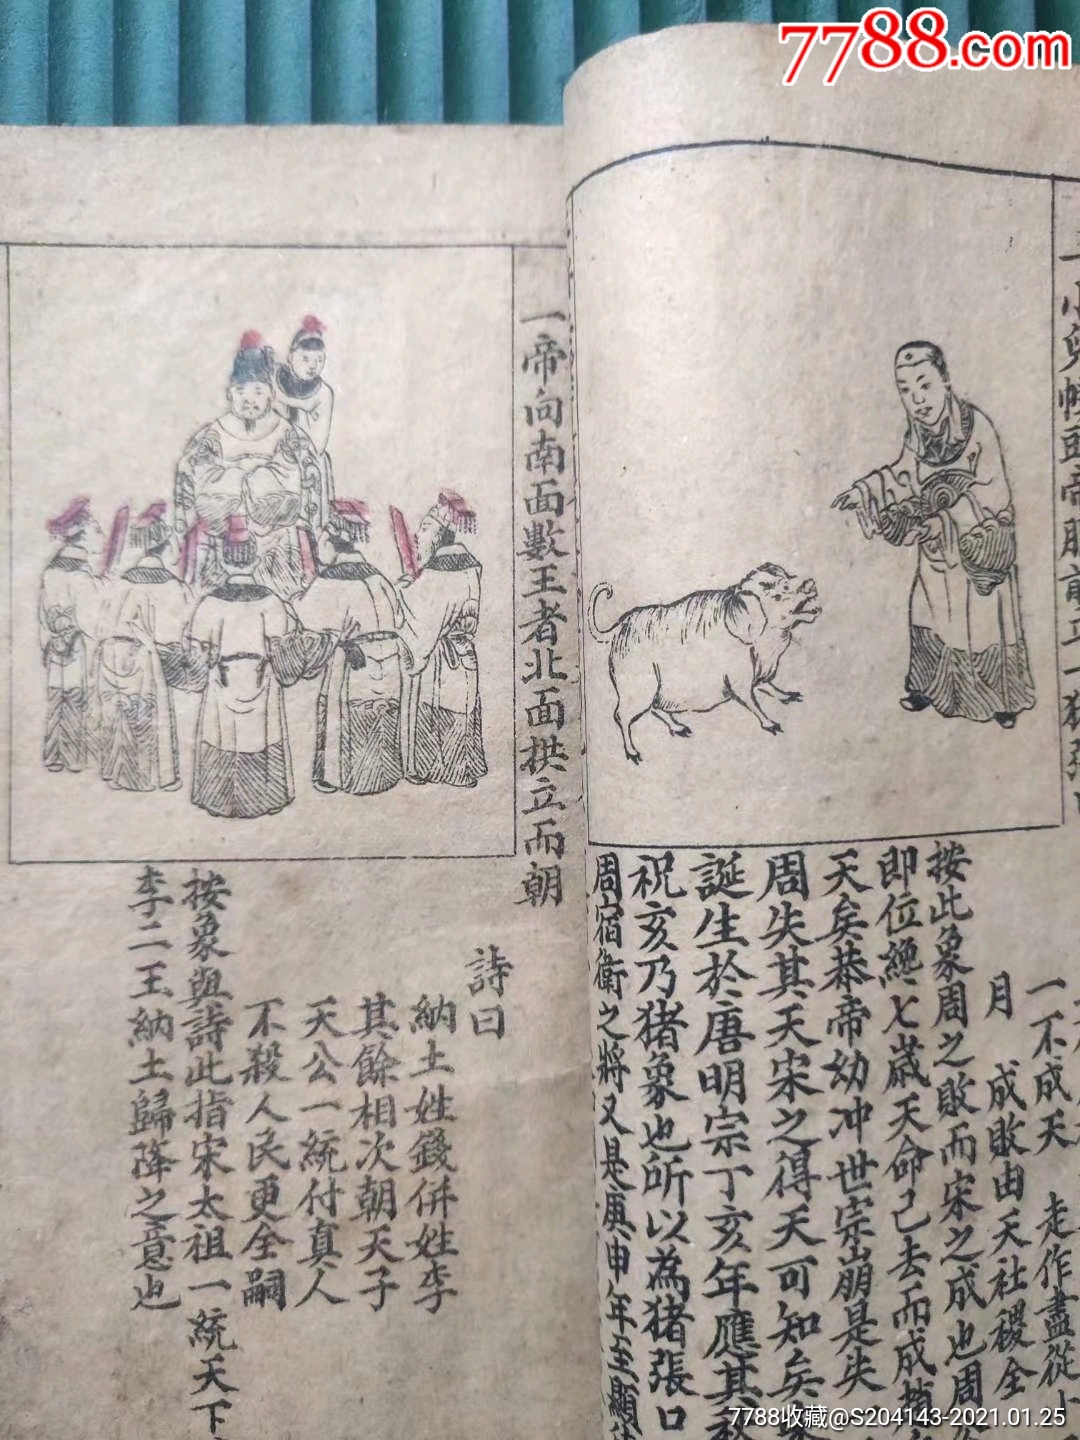 7788.com
一小兒幞頭帝服前立一猪張口
一不成天　走作盡從
月　成敗由天社稷全
按此象周之敗而宋之成也周
即位纔七歲天命已去而成
天矣恭帝幼冲世宗崩是失
周失其天宋之得天可知矣
誕生於唐明宗丁亥年應其
祝亥乃猪象也所以為猪張口
周宿衛之將又是庚申年至顯
一帝向南面數王者北面拱立而朝
詩曰
納土姓錢併姓李
其餘相次朝天子
天公一統付真人
不殺人民更全嗣
按象與詩此指宋太祖一統天下
李二王納土歸降之意也
7788收藏@S204143-2021.01.25